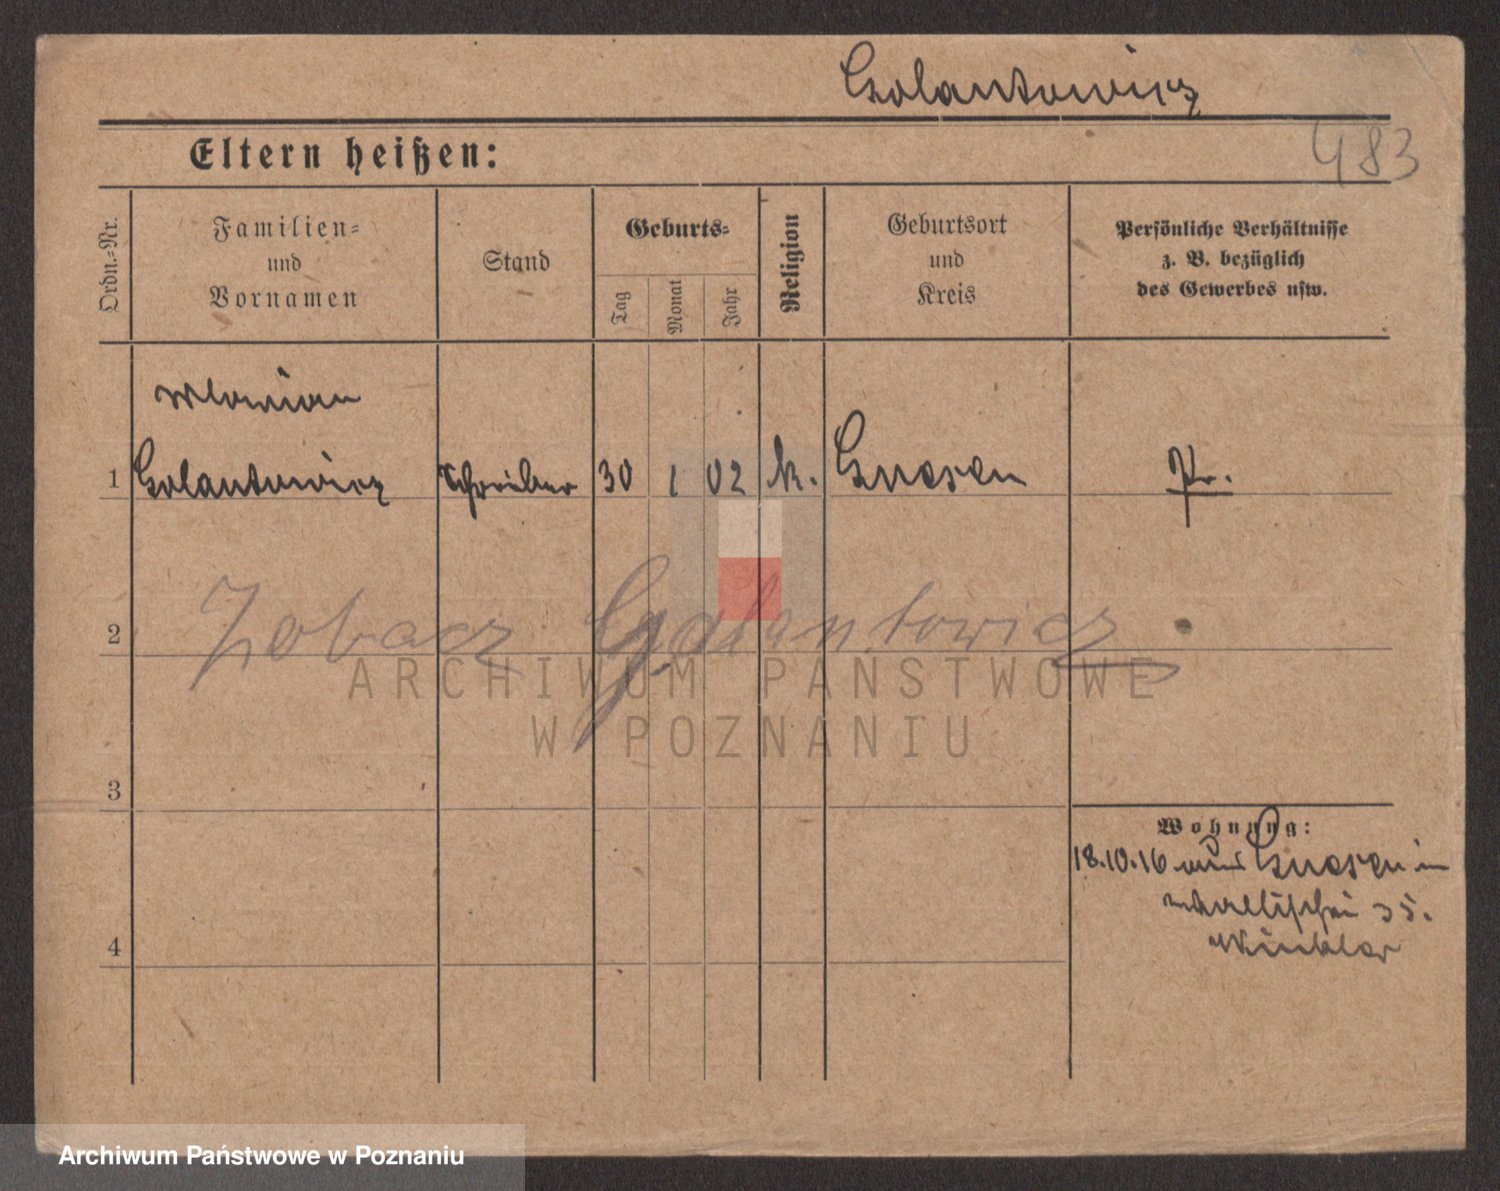 Golantowicz
483
Eltern heißen:
Ordn.-Nr.
Familien-
und
Vornamen
Stand
Geburts-
Tag
Monat
Jahr
Religion
Geburtsort
und
Kreis
Persönliche Verhältnisse
z. B. bezüglich
des Gewerbes usw.
1
Golantowicz
Schreiber
30
1
02
k.
Gnesen
Pr.
2
Zobacz Galantowicz
3
4
Wohnung:
18.10.16 aus Gnesen in
Wallischei 35.
Winkler
ARCHIWUM PAŃSTWOWE
W POZNANIU
Archiwum Państwowe w Poznaniu